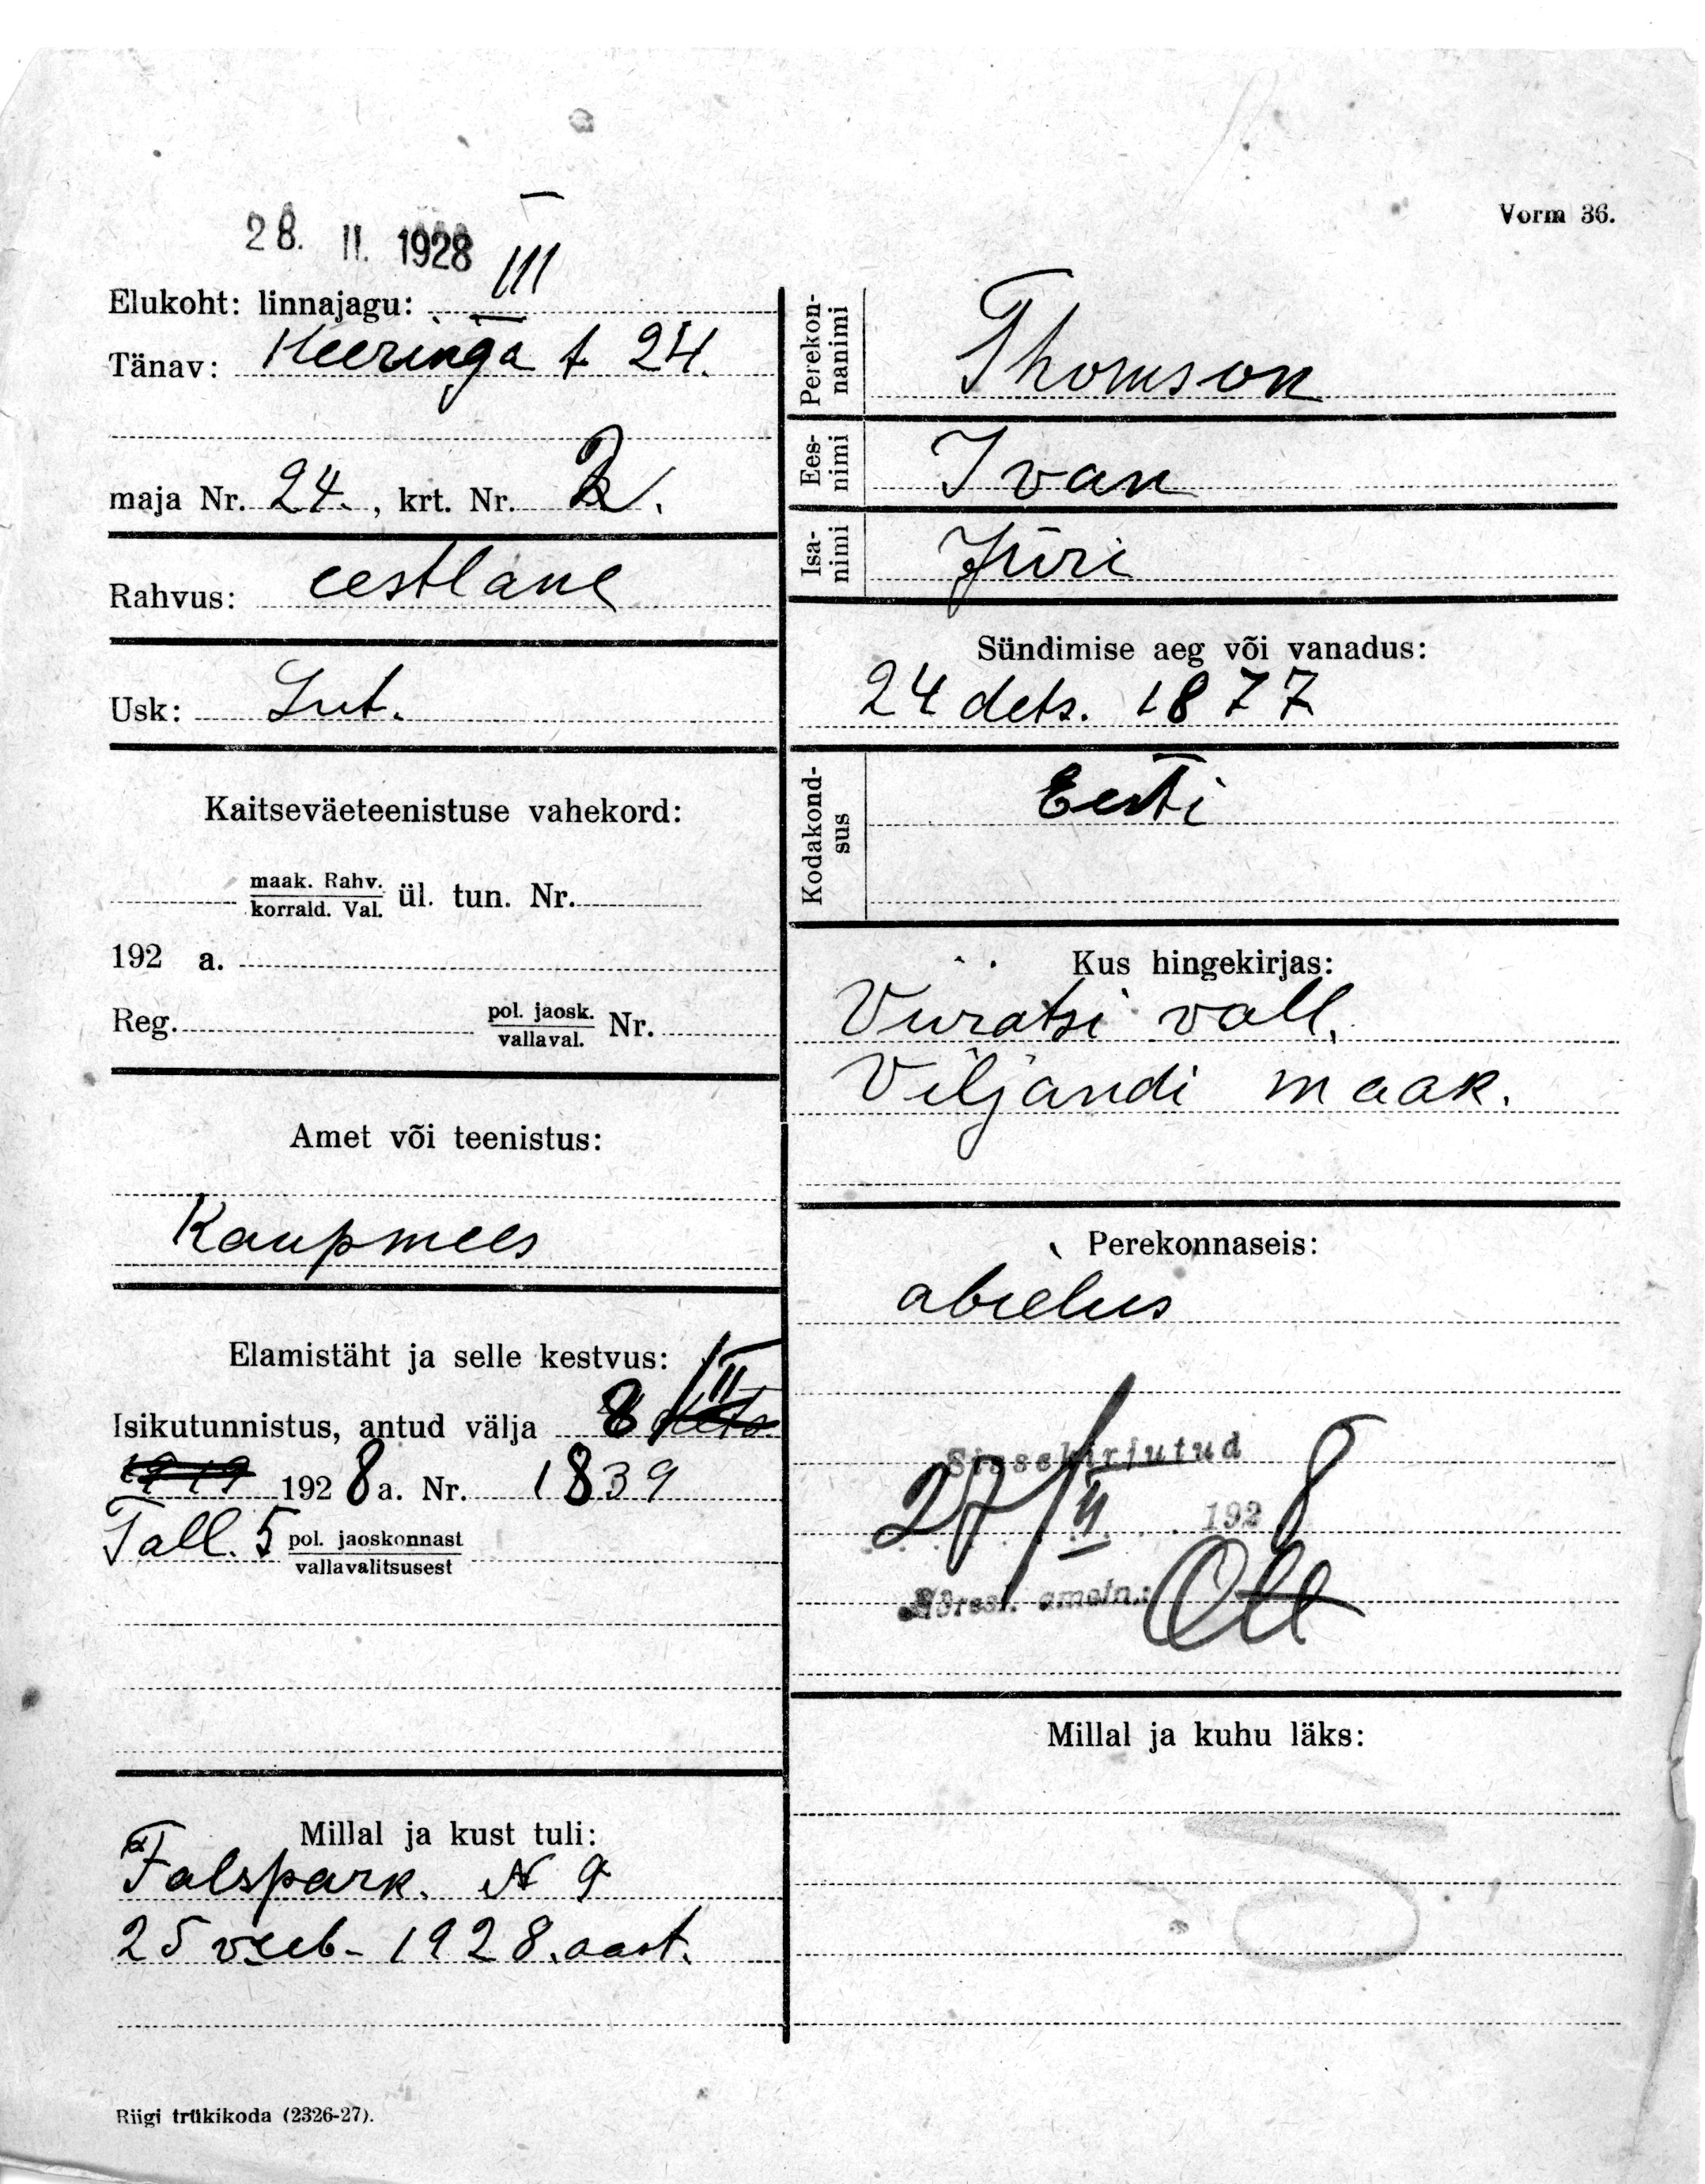 Vorm 36.
28. II. 1928
Elukoht: linnajagu: III
Tänav: Heeringa t 24.
maja Nr. 24., krt. Nr. 2.
Rahvus: eestlane
Usk: Lut.
Kaitseväeteenistuse vahekord:
maak. Rahv.
korrald. Val. ül. tun. Nr.
192 a.
Reg. pol. jaosk.
vallaval. Nr.
Amet või teenistus:
Kaupmees
Elamistäht ja selle kestvus:
Isikutunnistus, antud välja 8/II dets.
1919 1928 a. Nr. 1839
Tall. 5 pol. jaoskonnast
vallavalitsusest
Millal ja kust tuli:
Falspark. N 9
25 veeb- 1928. aast.
Riigi trükikoda (2326-27).
Perekon-
nanimi
Thomson
Ees-
nimi
Ivan
Isa-
nimi
Jüri
Sündimise aeg või vanadus:
24 dets. 1877
Kodakond-
sus
Eesti
Kus hingekirjas:
Viiratsi vall,
Viljandi maak.
Perekonnaseis:
abielus
Sissekirjutud
27/II 1928
Ott
Millal ja kuhu läks: